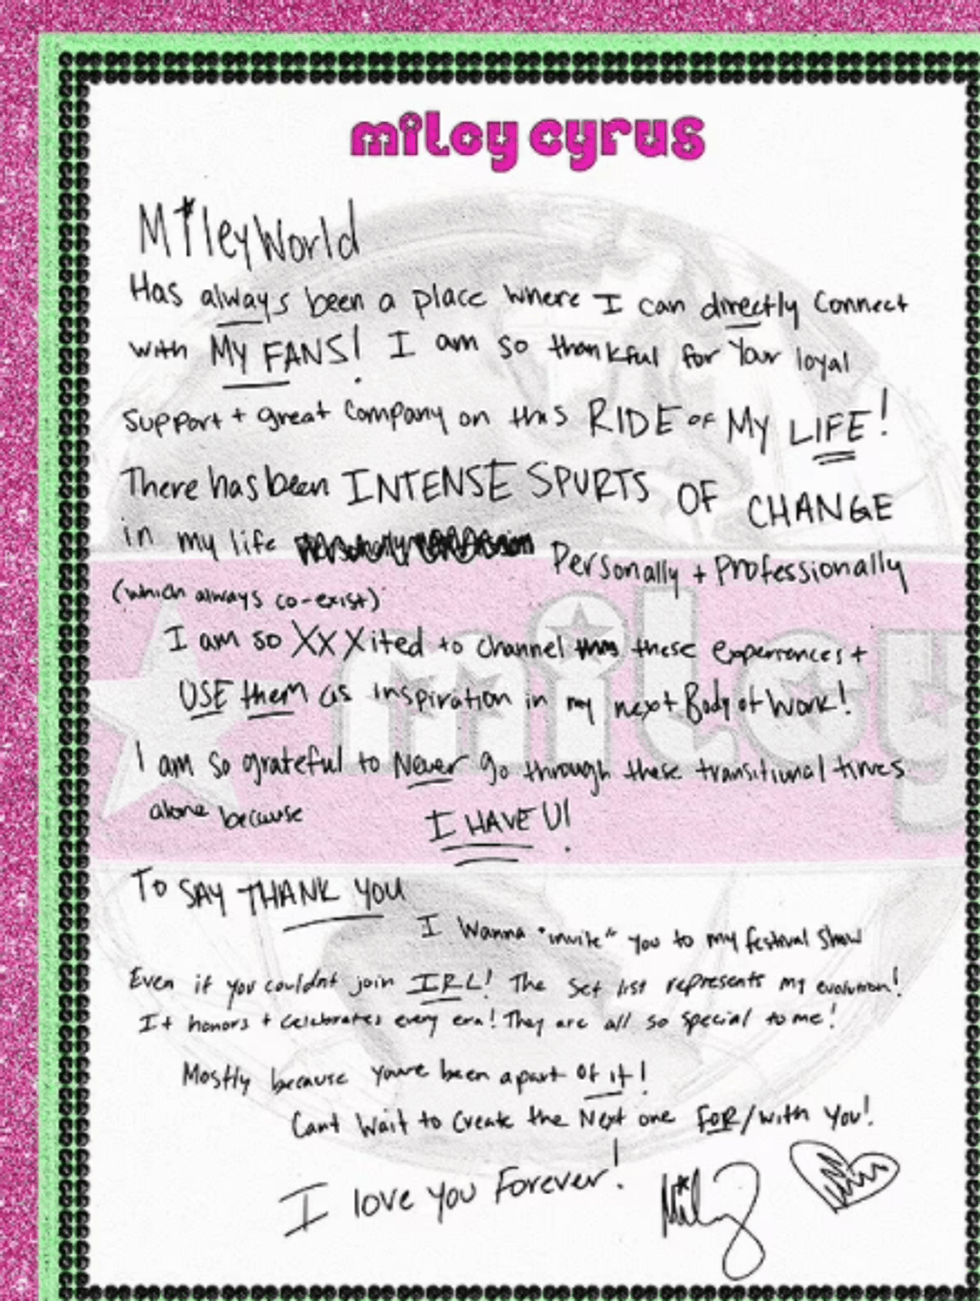 miley cyrus
MileyWorld
Has always been a place where I can directly connect
with MY FANS! I am so thankful for Your loyal
support + great company on this RIDE OF MY LIFE!
There has been INTENSE SPURTS OF CHANGE
in my life Personally + Professionally
(which always co-exist)
I am so XXXited to channel these experiences +
USE them as inspiration in my next Body of Work!
I am so grateful to Never go through these transitional times
alone because I HAVE U!
To SAY THANK YOU
I Wanna "invite" you to my festival show
Even if you couldnt join IRL! The set list represents my evolution!
It honors + celebrates every era! They are all so special to me!
Mostly because youre been apart of it!
Cant Wait to Create the Next one FOR/with you!
I love you Forever!
Miley
miley